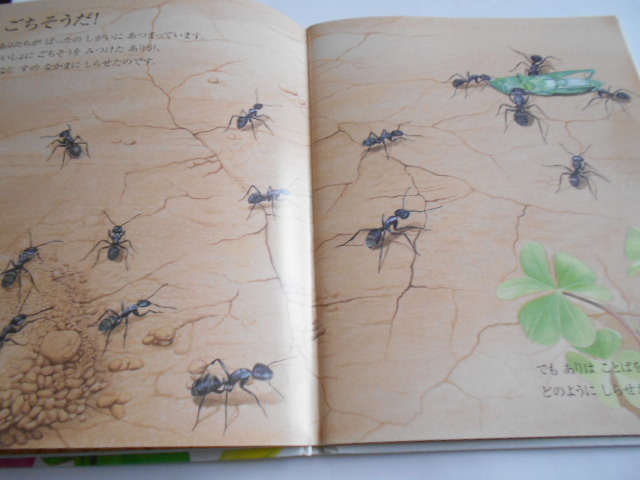 ごちそうだ!
ありたちが ばったの しがいに あつまっています。
いしょに ごちそうを みつけた ありが、
なじ すの なかまに しらせたのです。
でも ありは ことばを
どのように しらせた